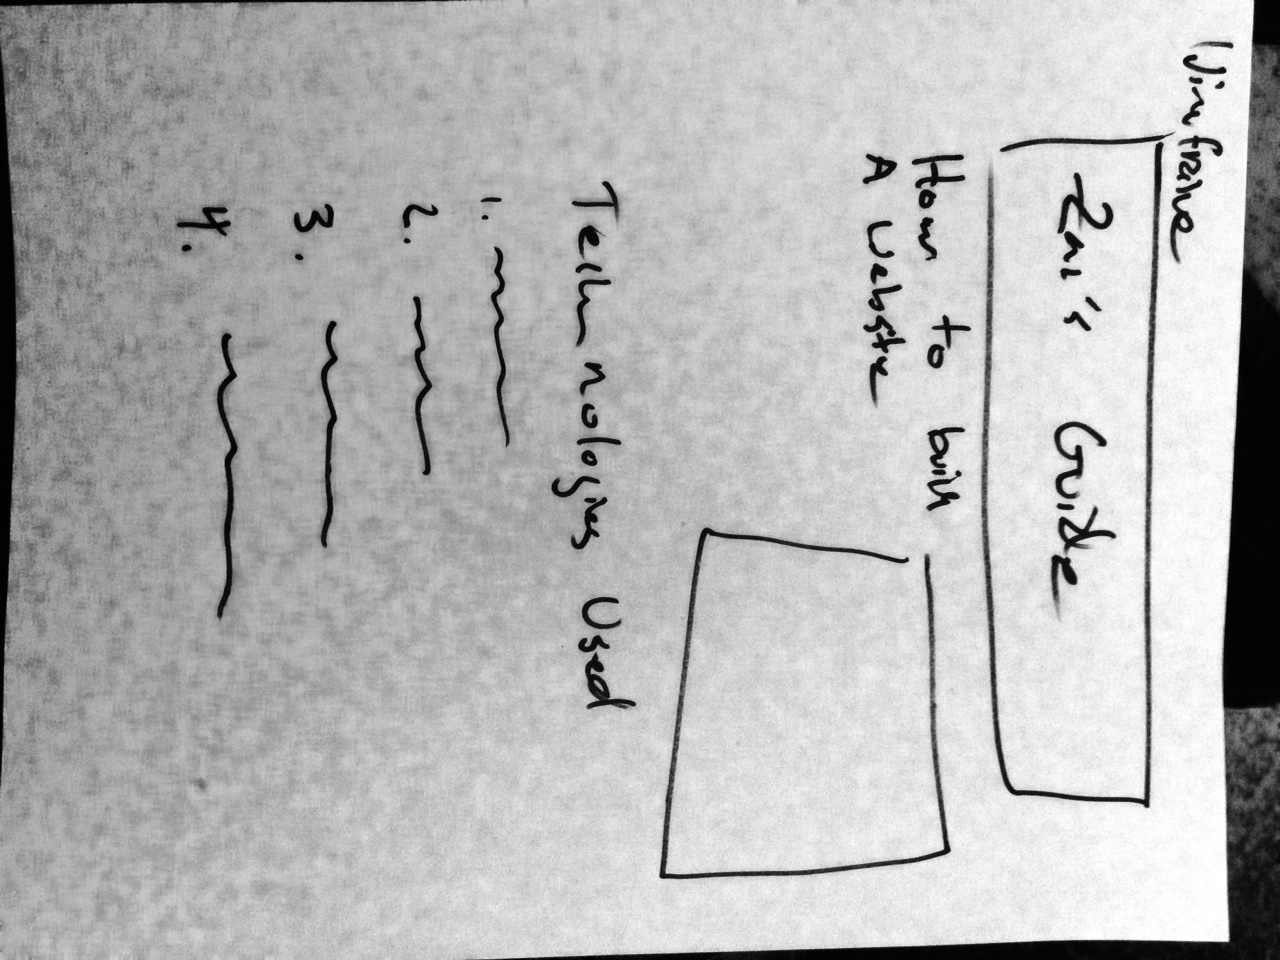 Wireframe
Zac's Guide
How to built
A Website
Technologies Used
1.
2.
3.
4.